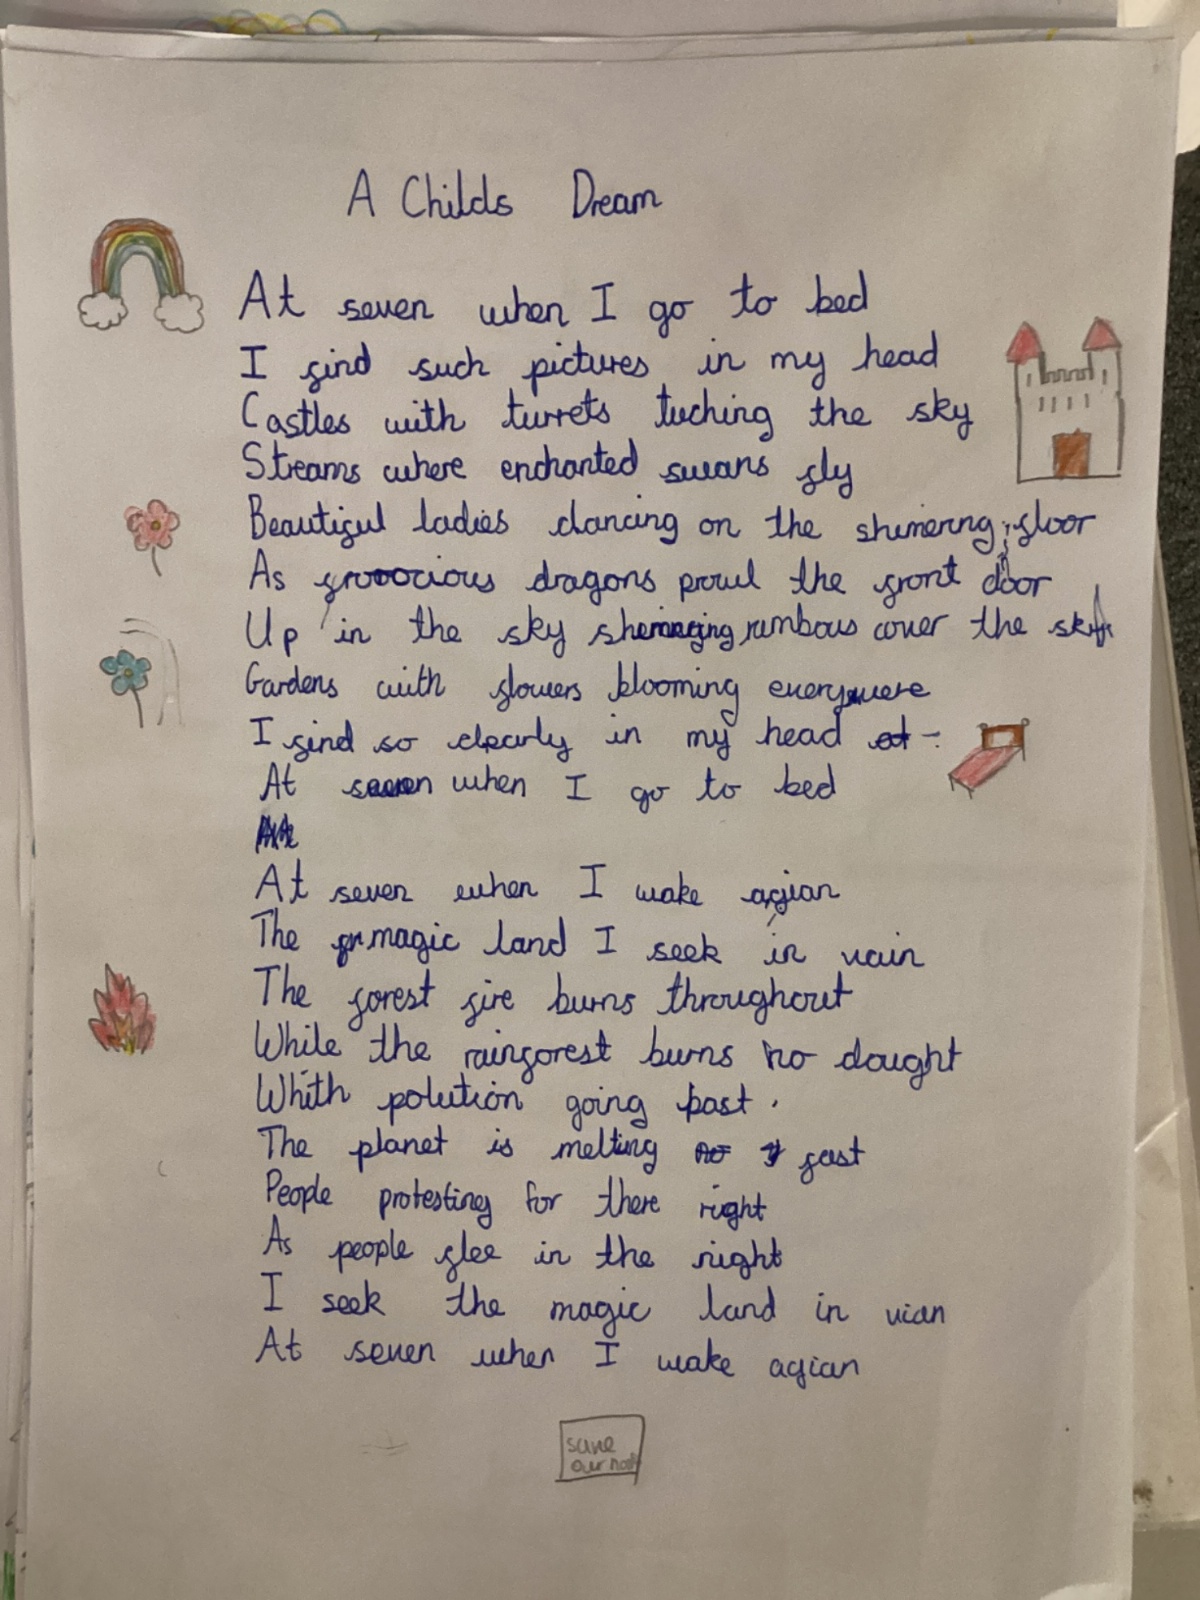 A Childs Dream
At seven when I go to bed
I find such pictures in my head
Castles with turrets tuching the sky
Streams where enchanted swans fly
Beautiful ladies dancing on the shimering floor
As froocious dragons prowl the front door
Up in the sky rambous cover the
Gardens with flowers blooming everywere
I find so clearly in my head
At seven when I go to bed
At seven when I wake agian
The magic land I seek in vain
The forest fire burns throughout
While the rainforest burns no dought
Whith polution going past.
The planet is melting fast
People protesting for there right
As people flee in the night
I seek the magic land in vian
At seven when I wake agian
save
our